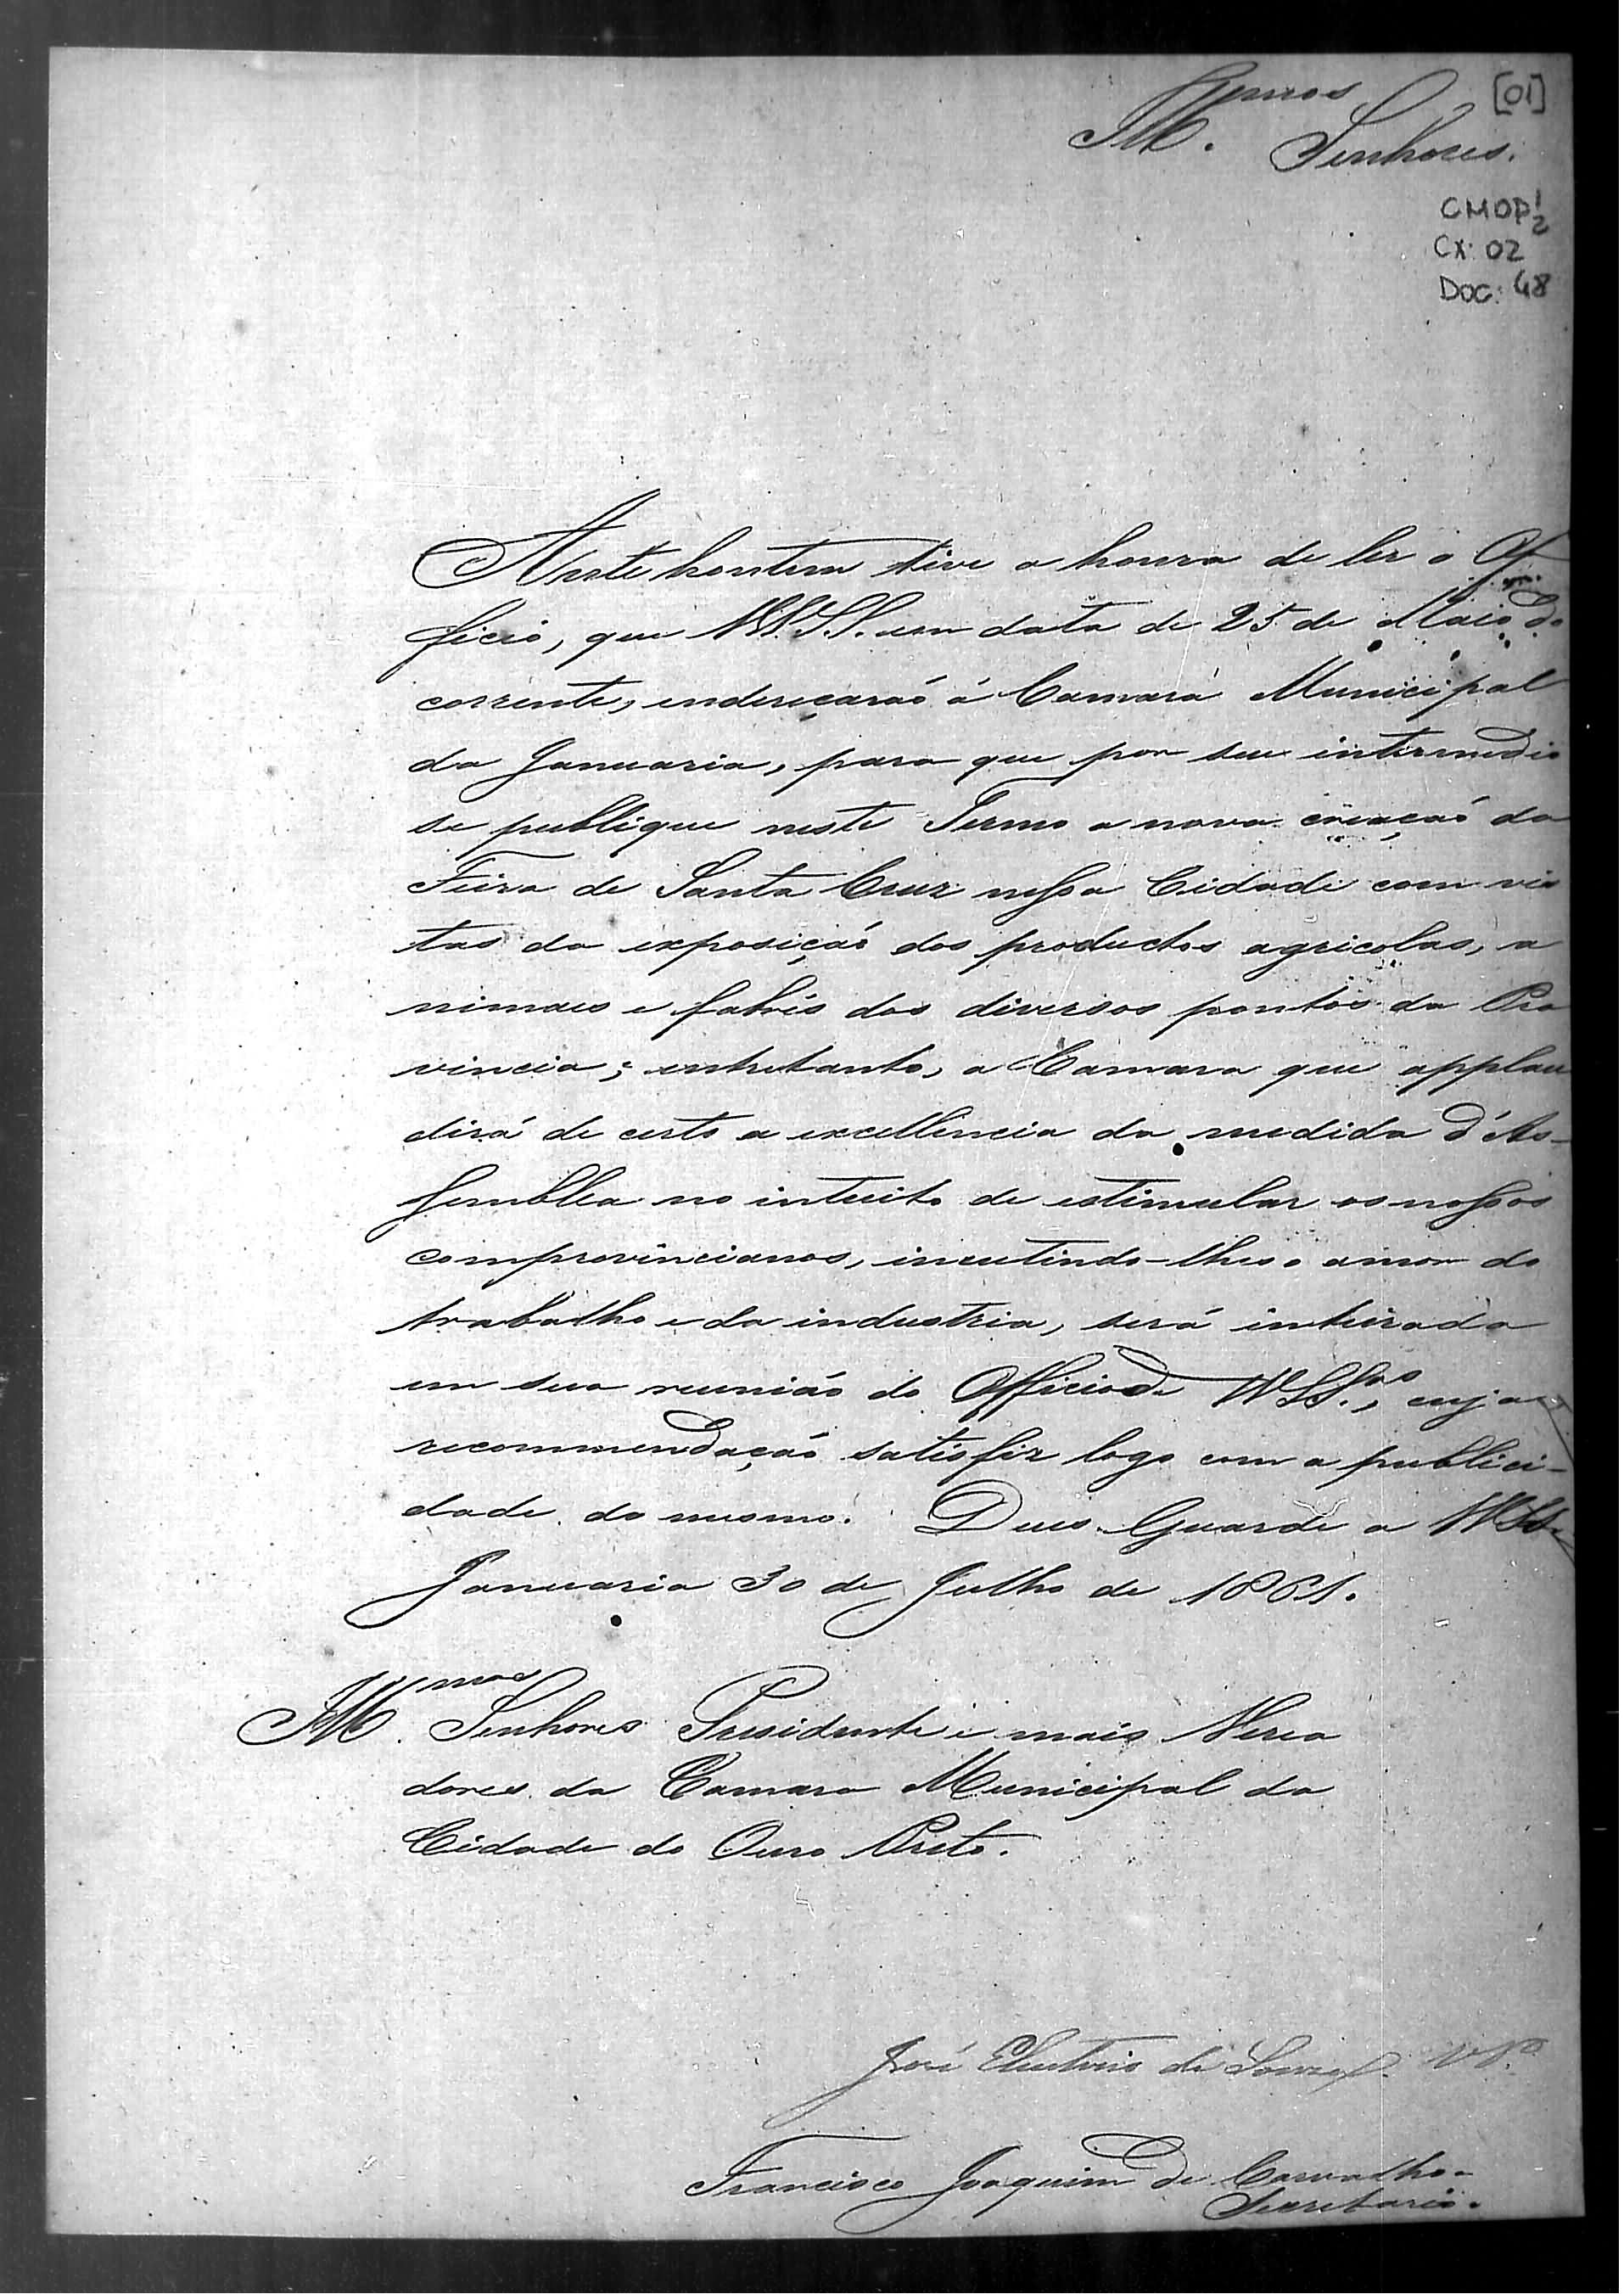 [01]
Ill.mos Senhores.
CMOP 1/2
CX: 02
DOC: 48
Ante hontem tive a honra de ler o Of
ficio, que VV.SS. em data de 25 de Maio do
corrente, endereçaraõ á Camara Municipal
da Januaria, para que por seu intermedio
se publique neste Termo a nova creaçaõ da
Feira de Santa Cruz nessa Cidade com vis
tas da exposiçaõ dos productos agricolas, a
nimaes e fabris dos diversos pontos da Pro
vincia; entretanto, a Camara que applau
dirá de certo a excellencia da medida d'As-
semblea no intuito de estimular os nossos
comprovincianos, incutindo-lhes o amor do
trabalho e da industria, será inteirada
em sua reunião do Officio de VVSS.as, cuja
recommendaçaõ satisfiz logo com a publici-
dade do mesmo. Deus Guarde a VVSS.
Januaria 30 de Julho de 1861.
Ill.mos Senhores Presidente e mais Verea
dores da Camara Municipal da
Cidade do Ouro Preto.
José Eleuterio de Souza
Francisco Joaquim de Carvalho
Secretario.